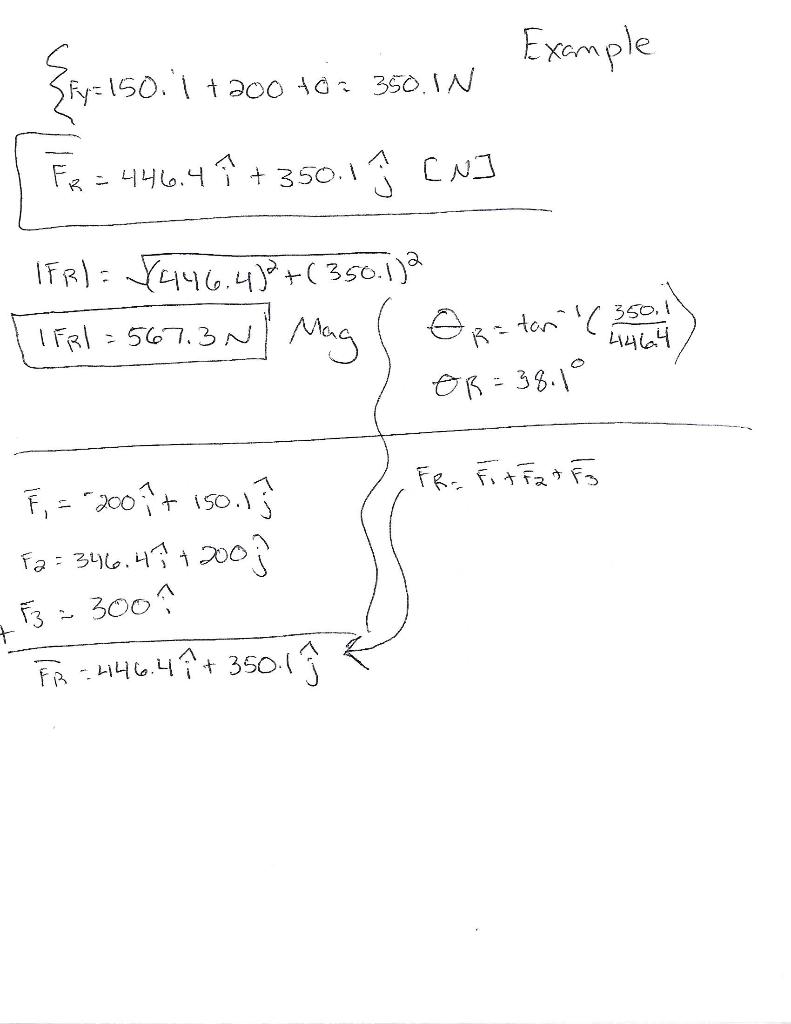 Example
ΣFy=150.1+200+0= 350.1N
F̅R = 446.4 î + 350.1 ĵ [N]
|FR| = √(446.4)²+(350.1)²
|FR| = 567.3 N Mag
θR = tan⁻¹(350.1/446.4)
θR = 38.1°
F̅R = F̅1 + F̅2 + F̅3
F̅1 = -200 î + 150.1 ĵ
F2 = 346.4 î + 200 ĵ
F̅3 = 300 î
+
F̅R = 446.4 î + 350.1 ĵ